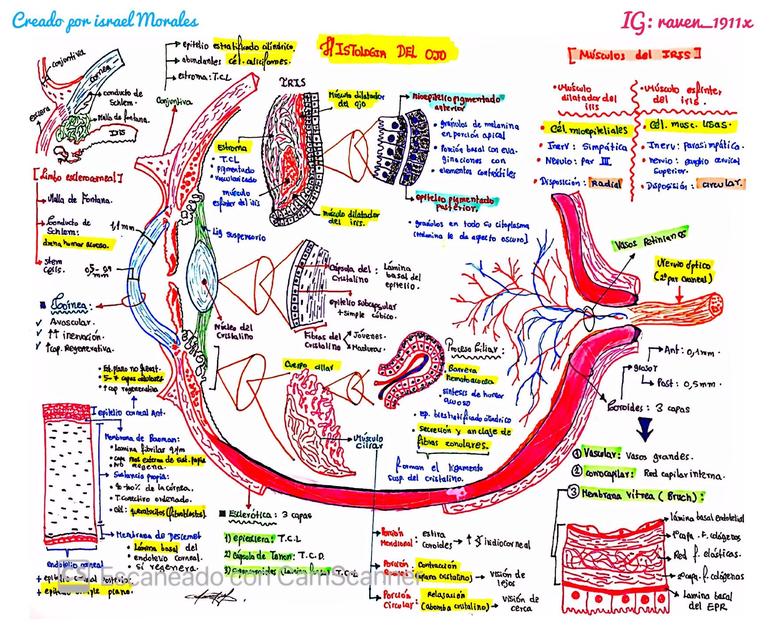 Creado por israel Morales
IG: raven_1911x
HISTOLOGIA DEL OJO
conjuntiva
cornea
conducto de
Schlem.
Malla de fontana.
Iris
→ epitelio estratificado cilindrico.
→ abundantes cél. caliciformes.
→ estroma: T.C.L
Conjuntiva
[Limbo esclerocorneal]
Malla de Fontana.
Conducto de
Schlem:
drena humor acuoso.
stem
cells.
1,1 mm
■ Cornea:
✓ Avascular.
✓ ↑↑ inervación.
✓ ↑cap. Regenerativa.
IRIS
Músculo dilatador
del ojo
Estroma
• T.C.L
pigmentado
• vascularizado
músculo
esfinter del iris
músculo dilatador
del iris.
mioepitelio pigmentado
anterior
• gránulos de melanina
en porción apical
• Porción basal con eva-
ginaciones con
elementos contráctiles
epitelio pigmentado
posterior.
• granulos en todo su citoplasma
(melanina le da aspecto oscuro)
[Músculos del IRIS]
• Músculo
dilatador del
iris
• Músculo esfinter
del iris.
• Cél mioepiteliales
• Inerv: Simpática
• Nervio: Par III
• Disposición: Radial
• Cél. musc. lisas.
• Inerv: Parasimpática.
• nervio: ganglio cervical
superior.
• Disposición: circular.
Lig suspensorio
Núcleo del
Cristalino
Cápsula del
Cristalino
: Lámina
basal del
epitelio.
epitelio subcapsular
+ simple cúbico.
Fibras del
Cristalino
Jóvenes.
Maduras.
Vasos Retinianos
Nervio óptico
(2º par craneal)
Cuerpo ciliar
Músculo
ciliar
Proceso Ciliar:
Barrera
hematoacuosa
• sintesis de humor
acuoso
• ep. biestratificado cilíndrico
• secreción y anclaje de
fibras zonulares.
forman el ligamento
susp. del cristalino.
grosor
→ Ant: 0,1 mm.
→ Post: 0,5 mm.
Coroides: 3 capas
① Vascular: Vasos grandes.
② coriocapilar: Red capilar interna.
③ Membrana vitrea (Bruch):
lámina basal endotelial
capa F. colágenas
Red f. elásticas.
capa f. colágenas
Lamina basal
del EPR.
Est. plano no querat.
• 5-7 capas celulares
• ↑ cap regenerativa
epitelio corneal Ant.
Membrana de Bowman:
• Lámina fibrilar
• No regenera.
Sustancia propia:
• 90% de la córnea.
• T. conectivo ordenado.
• Cél: queratocitos (fibroblastos).
→ Membrana de Descemet
• Lámina basal del
endotelio corneal.
• si regenera.
endotelio corneal
+ epitelio simple plano.
■ Esclerótica: 3 capas
1) epiesclera: T.C.L
2) Cápsula de Tenon: T.C.D.
Porción
Meridional:
estira
coroides
→ ↑
Porción
Contracción
→ Visión de
lejos
Porción
Circular:
Relajación
(abomba cristalino)
→ Visión de
cerca
CS Escaneado con CamScanner